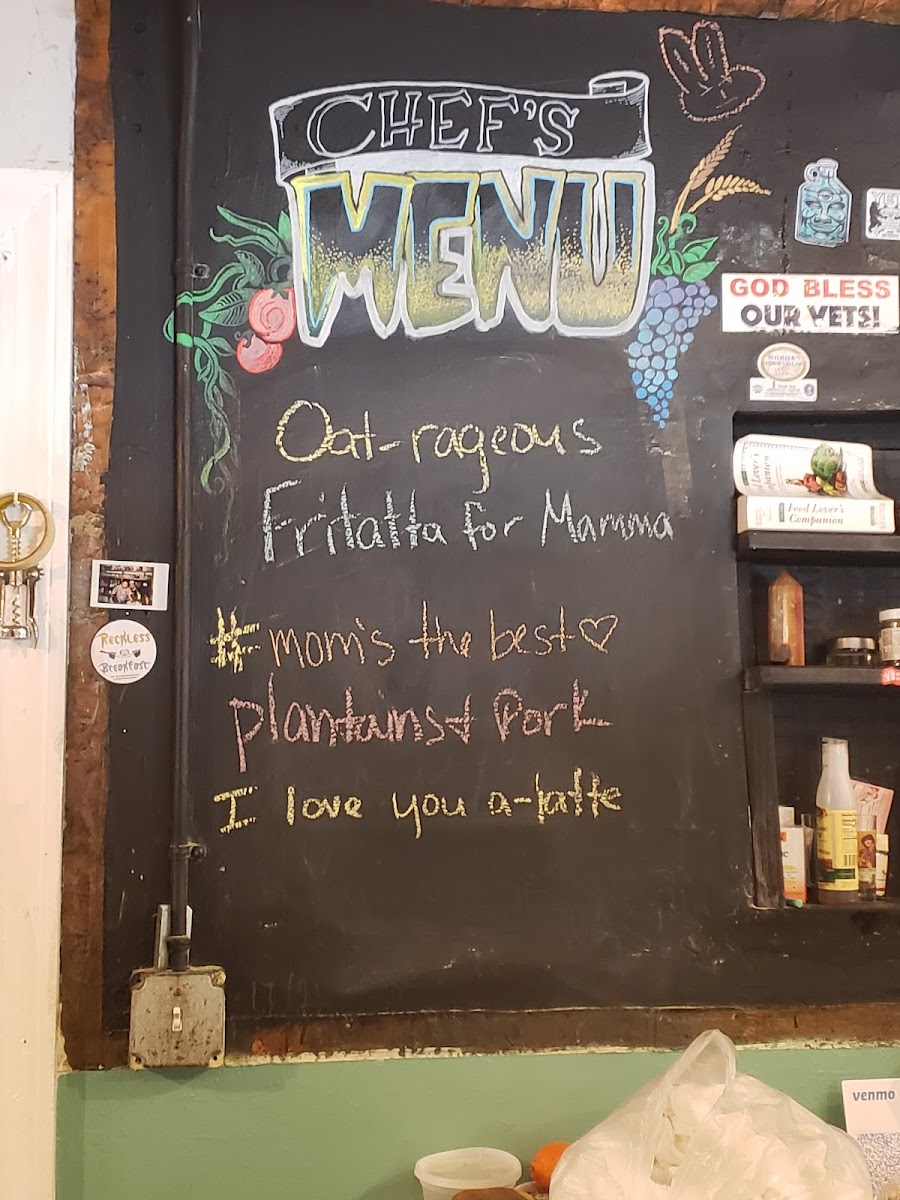 CHEF'S
MENU
GOD BLESS
OUR VETS!
Oat-rageous
Fritatta for Mamma
Food Lover's
Companion
RECKLESS
BREAKFAST
#mom's the best♡
plantains+ Pork
I love you a-latte
venmo